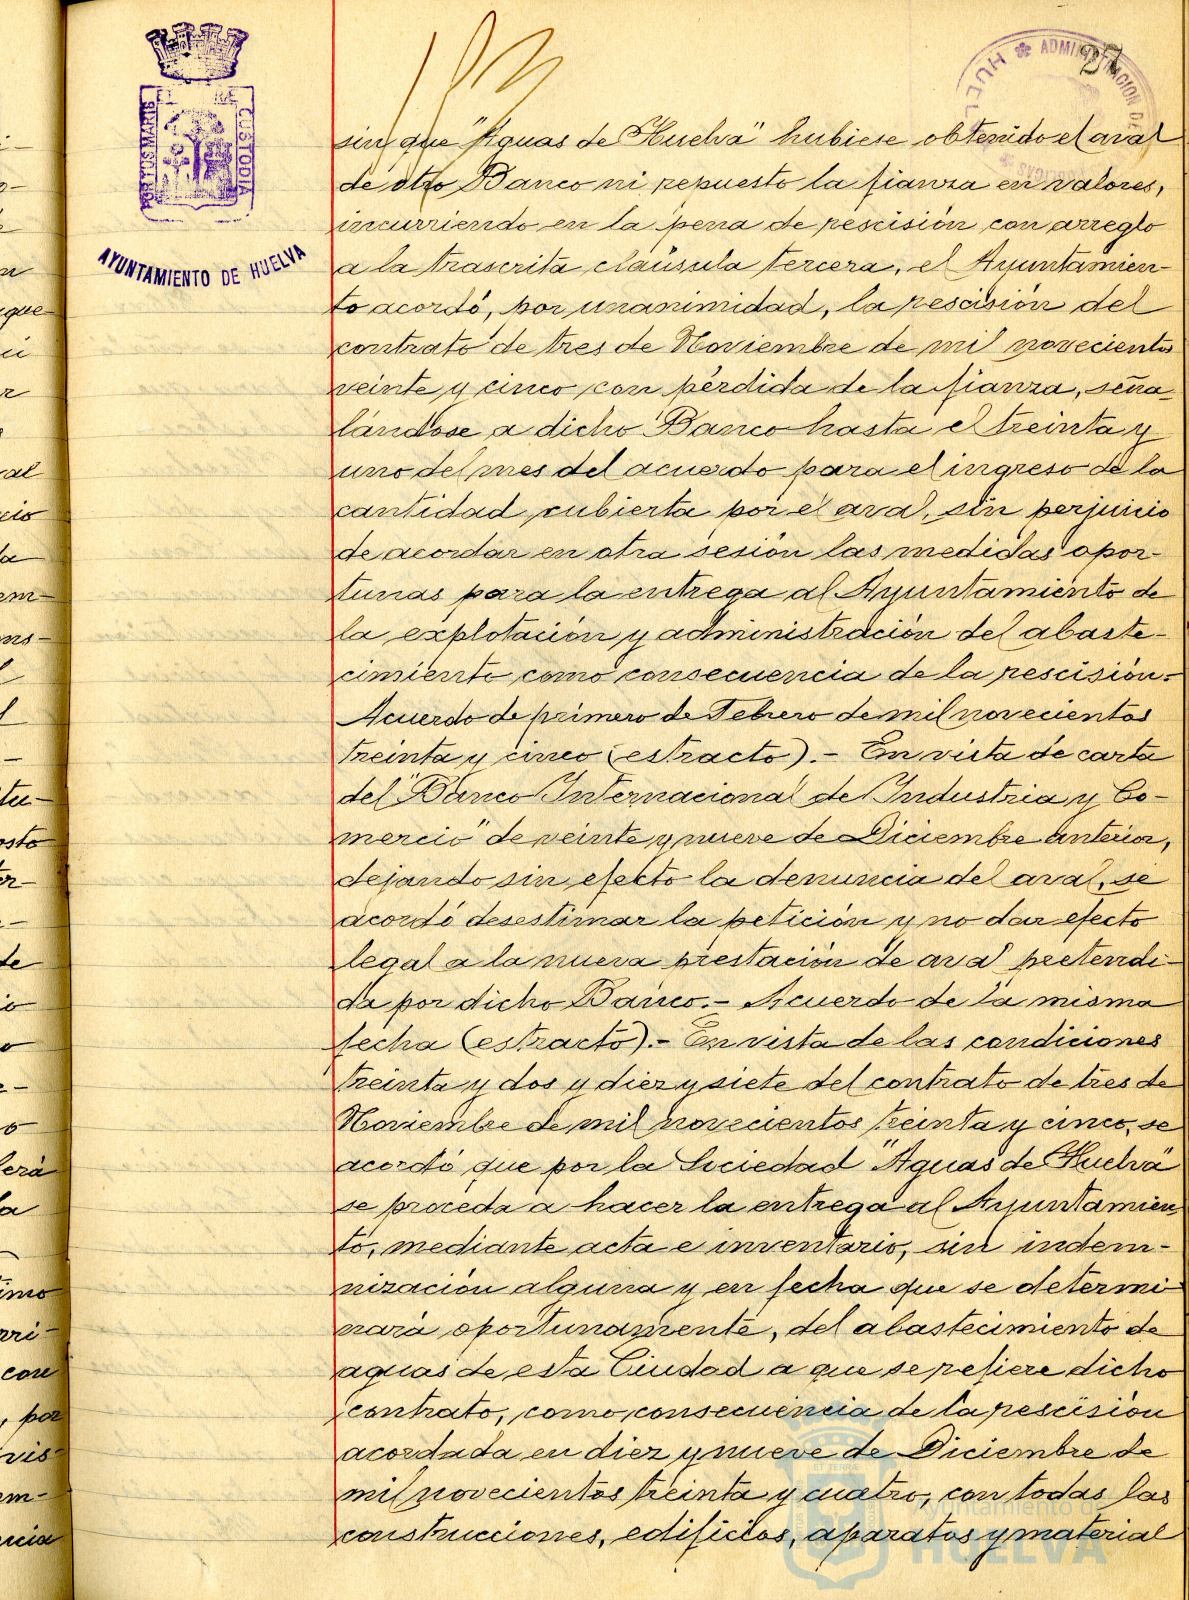 27
PORTUS MARIS ET TERRE CUSTODIA
AYUNTAMIENTO DE HUELVA
ADMINISTRACION DE
HUELVA
sin que "Aguas de Huelva" hubiese obtenido el aval
de otro Banco ni repuesto la fianza en valores,
incurriendo en la pena de rescisión con arreglo
a la trascrita claúsula tercera, el Ayuntamien-
to acordó, por unanimidad, la rescisión del
contrato de tres de Noviembre de mil novecientos
veinte y cinco con pérdida de la fianza, seña-
lándose a dicho Banco hasta el treinta y
uno del mes del acuerdo para el ingreso de la
cantidad cubierta por el aval, sin perjuicio
de acordar en otra sesión las medidas opor-
tunas para la entrega al Ayuntamiento de
la explotación y administración del abaste-
cimiento como consecuencia de la rescisión.-
Acuerdo de primero de Febrero de mil novecientos
treinta y cinco (estracto).- En vista de carta
del "Banco Internacional de Industria y Co-
mercio" de veinte y nueve de Diciembre anterior,
dejando sin efecto la denuncia del aval, se
acordó desestimar la petición y no dar efecto
legal a la nueva prestación de aval pretendi-
da por dicho Banco.- Acuerdo de la misma
fecha (estracto).- En vista de las condiciones
treinta y dos y diez y siete del contrato de tres de
Noviembre de mil novecientos treinta y cinco, se
acordó que por la Sociedad "Aguas de Huelva"
se proceda a hacer la entrega al Ayuntamien-
to, mediante acta e inventario, sin indem-
nización alguna y en fecha que se determi-
nará oportunamente, del abastecimiento de
aguas de esta Ciudad a que se refiere dicho
contrato, como consecuencia de la rescisión
acordada en diez y nueve de Diciembre de
mil novecientos treinta y cuatro, con todas las
construcciones, edificios, aparatos y material
Ayuntamiento de
HUELVA